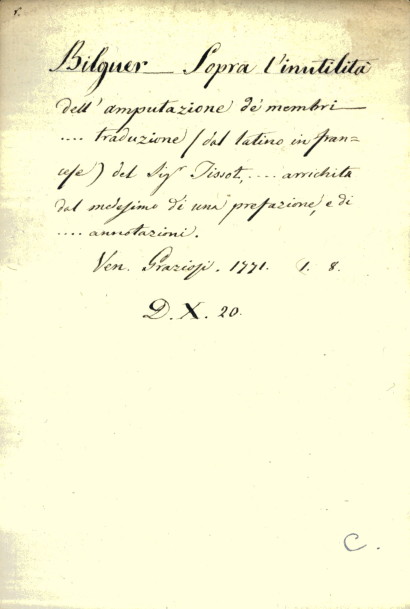 Bilguer — Sopra l'inutilità
dell'amputazione de' membri —
.... traduzione (dal latino in fran=
cese) del Sigr Tissot, .... arrichita
dal medesimo di una prefazione, e di
.... annotazioni.
Ven. Graziosi. 1771. 1. 8.
D. X. 20.
C.